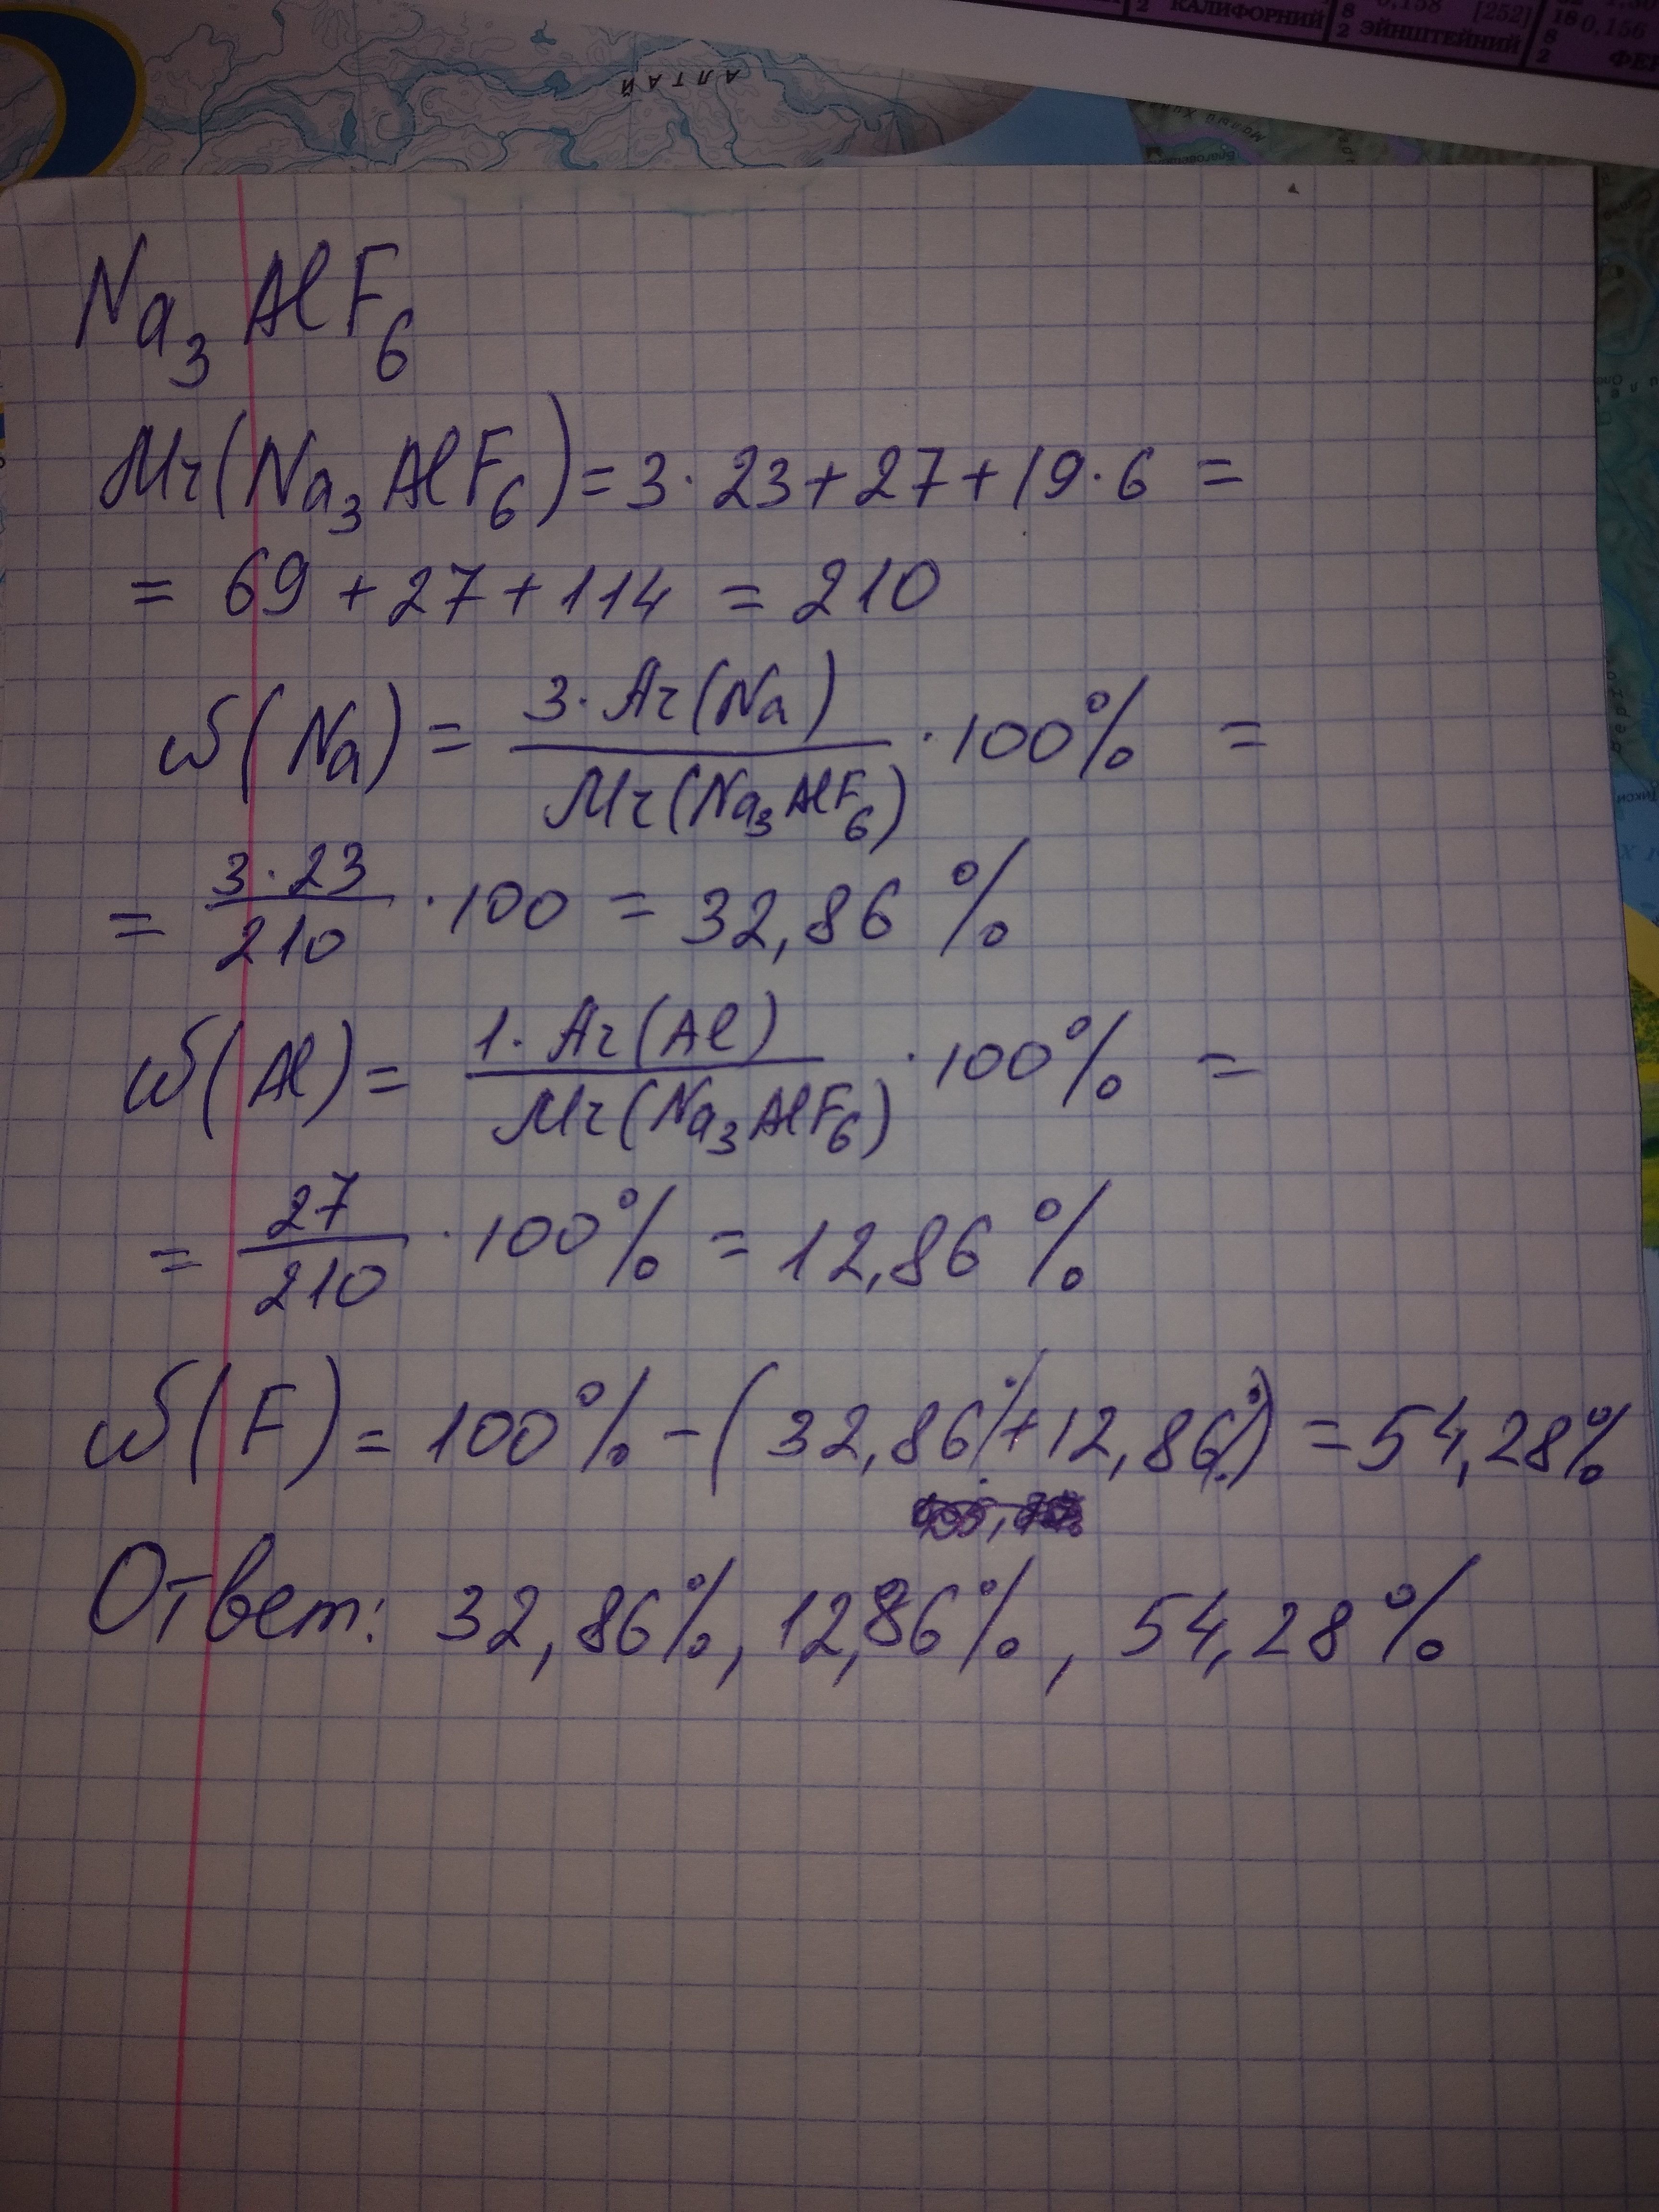 КАЛИФОРНИЙ
[252]
ЭЙНШТЕЙНИЙ
0,156
АЛТАЙ
Na₃AlF₆
Mr(Na₃AlF₆)=3·23+27+19·6=
=69+27+114=210
ω(Na)=3·Ar(Na)/Mr(Na₃AlF₆)·100%=
=3·23/210·100=32,86%
ω(Al)=1·Ar(Al)/Mr(Na₃AlF₆)·100%=
=27/210·100%=12,86%
ω(F)=100%-(32,86%+12,86%)=54,28%
Ответ: 32,86%, 12,86%, 54,28%